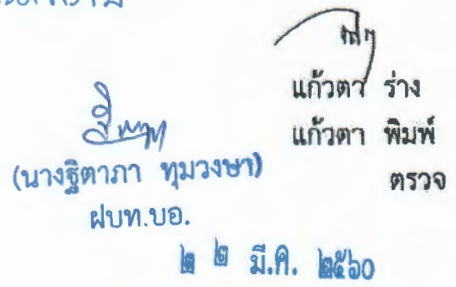 แก้วตา ร่าง
แก้วตา พิมพ์
ตรวจ
(นางฐิตาภา ทุมวงษา)
ฝบท.บอ.
๒ ๒ มี.ค. ๒๕๖๐